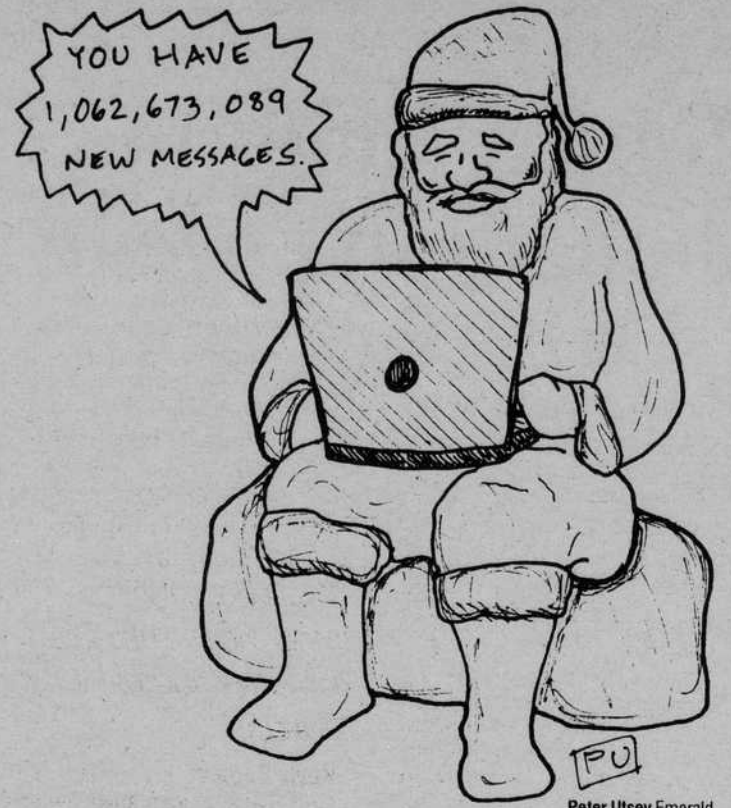 YOU HAVE
1,062,673,089
NEW MESSAGES.
PU
Peter Utsey Emerald